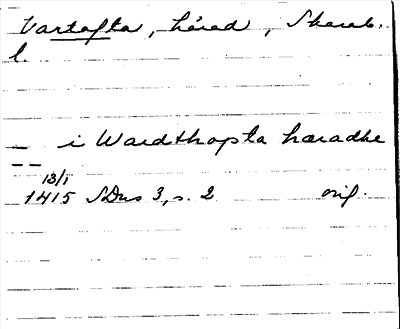 Vartofta, härad, Skarab.
l.
— i Wardthopta hæradhe
13/1
1415 SDns 3, s. 2 orig.